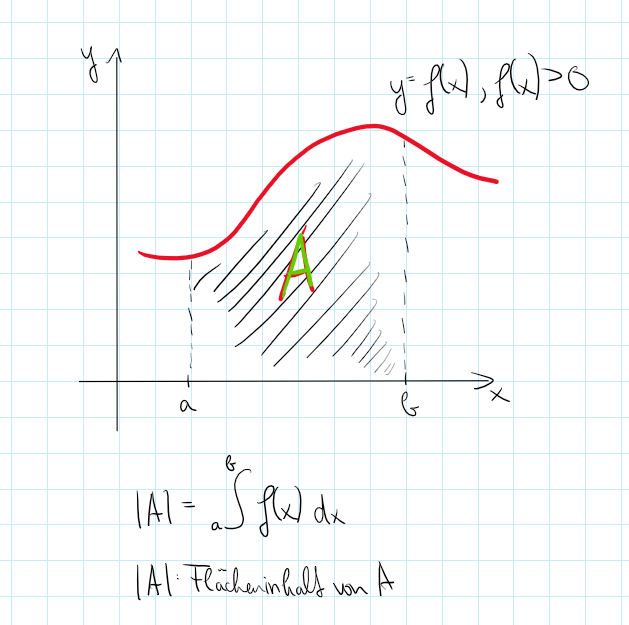 y
y = f(x), f(x) > 0
A
a
b
x
|A| = ₐ∫ᵇ f(x) dx
|A|: Flächeninhalt von A